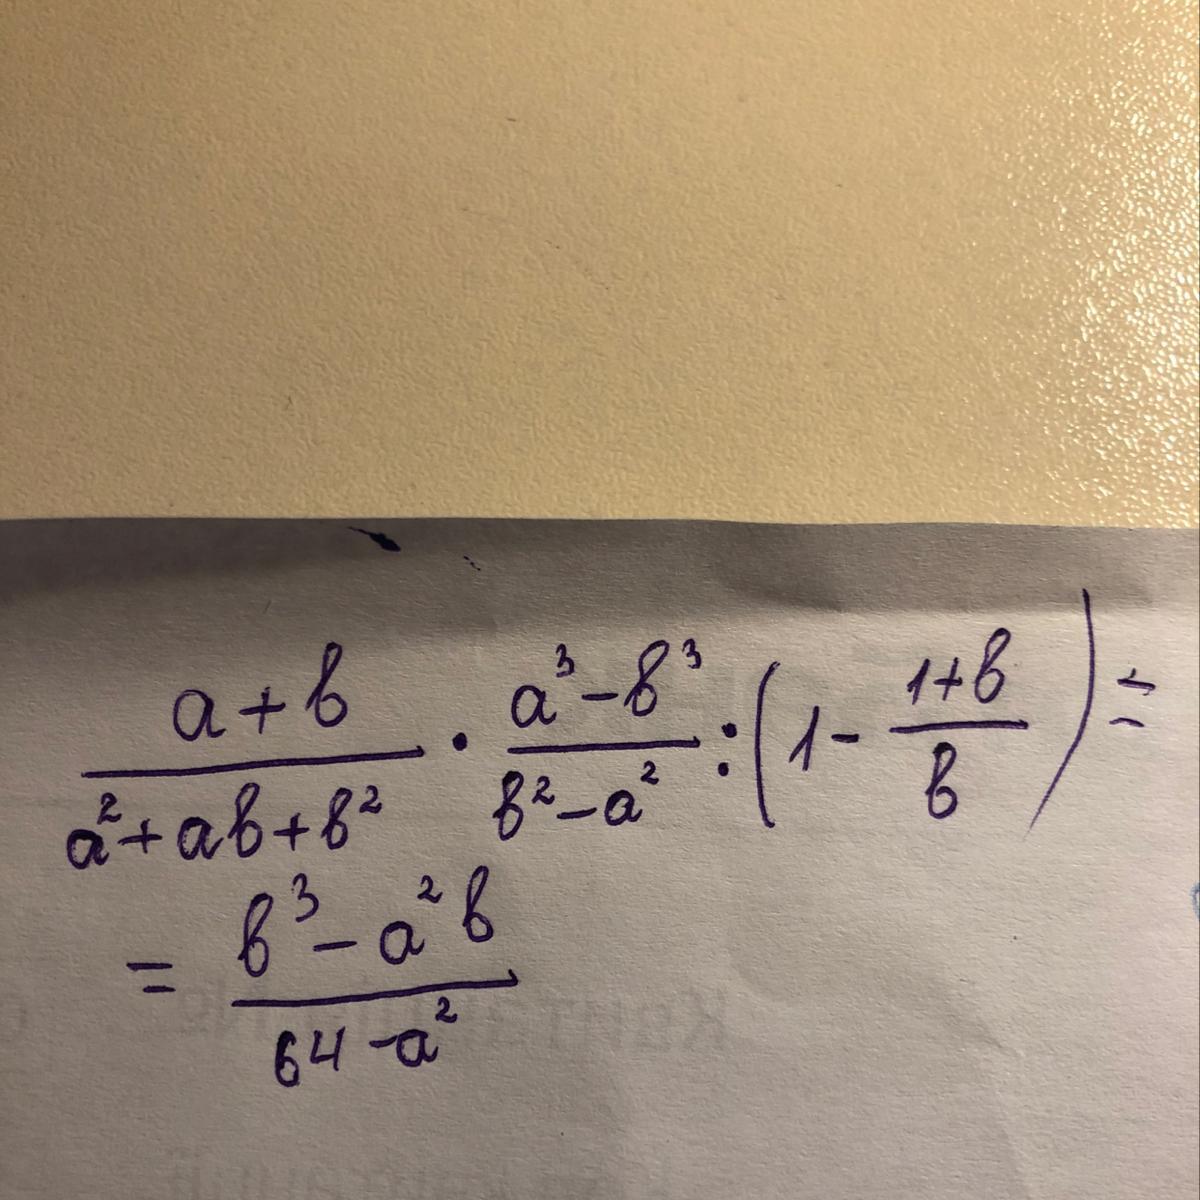 (a+b)/(a²+ab+b²) · (a³-b³)/(b²-a²) : (1 - (1+b)/b) =
= (b³-a²b)/(64-a²)